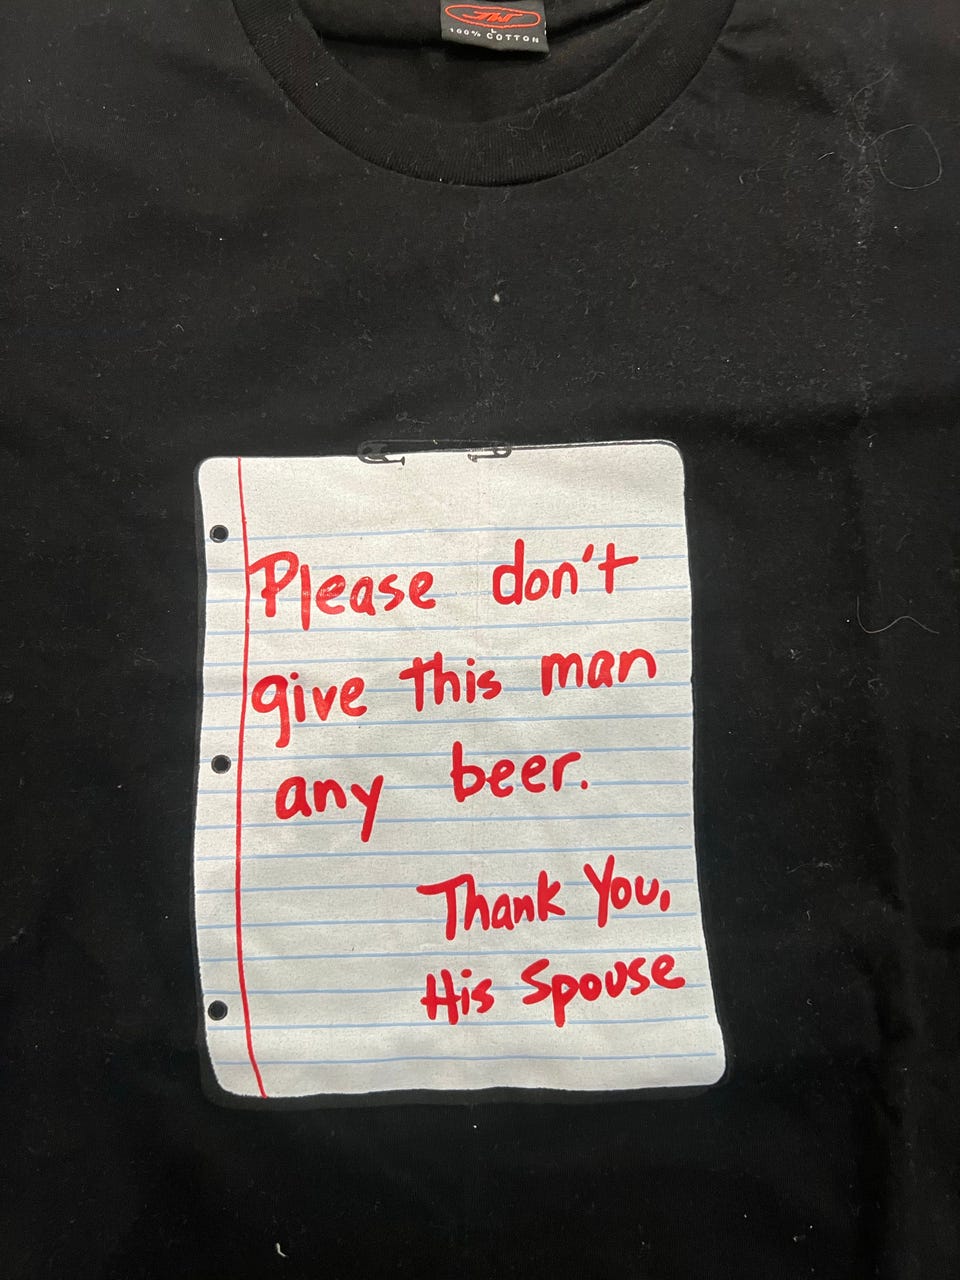 L
100% COTTON
Please don't
give this man
any beer.
Thank You,
His Spouse